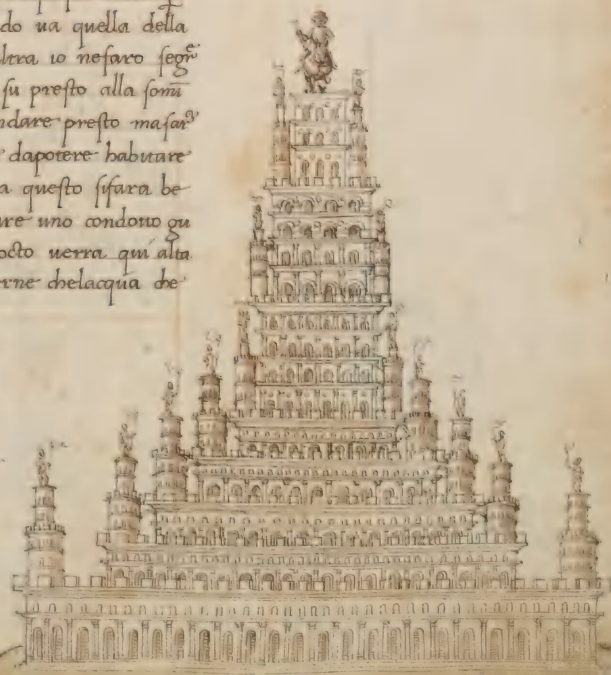 do ua quella della
ltra io nefaro segr̃e
su presto alla som̃
ndare presto masar
dapotere habitare
a questo sifara be
are uno condotto gu
octo uerra qui alta
erne chelacqua che